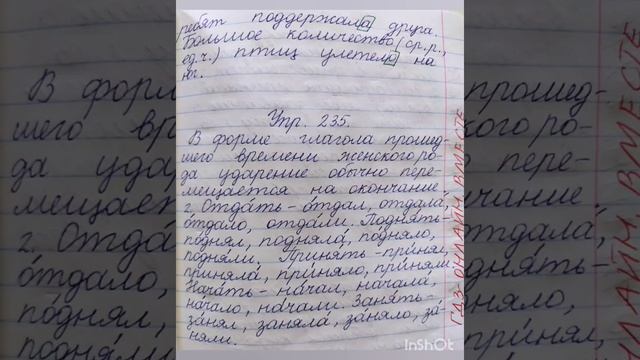 ребят поддержала друга.
Большое количество (ср.р.,
ед.ч.) птиц улетело на
юг.
Упр. 235.
В форме глагола прошед-
шего времени женского ро-
да ударение обычно пере-
мещается на окончание
г. Отда́ть - о́тдал, отдала́,
о́тдало, о́тдали. Подня́ть -
по́днял, подняла́, по́дняло,
по́дняли. Приня́ть - при́нял,
приняла́, при́няло, при́няли.
Нача́ть - на́чал, начала́,
на́чало, на́чали. Заня́ть -
за́нял, заняла́, за́няло, за́-
няли.
ГДЗ ОНЛАЙН ВМЕСТЕ
InShot